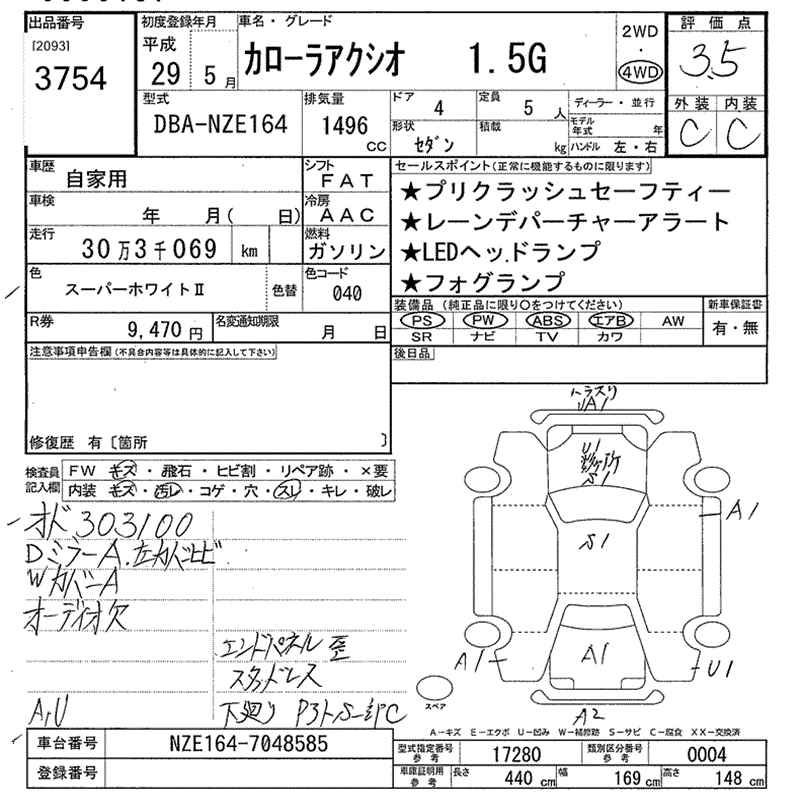 出品番号
[2093]
3754
初度登録年月
平成
29 5月
車名・グレード
カローラアクシオ 1.5G
2WD
・
4WD
評価点
3.5
外装 内装
C C
型式
DBA-NZE164
排気量
1496
CC
ドア 4
定員 5 人
ディーラー・並行
形状 セダン
積載 kg
モデル年式 年
ハンドル 左・右
車歴 自家用
シフト
FAT
車検
年 月( 日)
冷房
AAC
走行
30万3千069 km
燃料
ガソリン
色
スーパーホワイトⅡ
色替
色コード
040
R券
9,470円
名変通知期限
月 日
セールスポイント(正常に機能するものに限ります)
★プリクラッシュセーフティー
★レーンデパーチャーアラート
★LEDヘッドランプ
★フォグランプ
装備品(純正品に限り○をつけてください)
PS PW ABS エアB AW
SR ナビ TV カワ
新車保証書
有・無
後日品
注意事項申告欄(不具合内容等は具体的に記入して下さい)
修復歴 有〔箇所 〕
検査員
記入欄
FW キズ・飛石・ヒビ割・リペア跡・×要
内装 キズ・汚レ・コゲ・穴・スレ・キレ・破レ
オド303100
DミラーA.左カバーヒビ
WカバーA
オーディオ欠
エンドパネル歪
スタッドレス
A,U
下廻り P3ト,S一部C
UA1
U1
S1
S1
A1
A1
A1
U1
A2
スペア
A-キズ E-エクボ U-凹み W-補修跡 S-サビ C-腐食 XX-交換済
車台番号 NZE164-7048585
登録番号
型式指定番号
参考
17280
類別区分番号
参考
0004
車庫証明用
参考
長さ 440 cm
幅 169 cm
高さ 148 cm